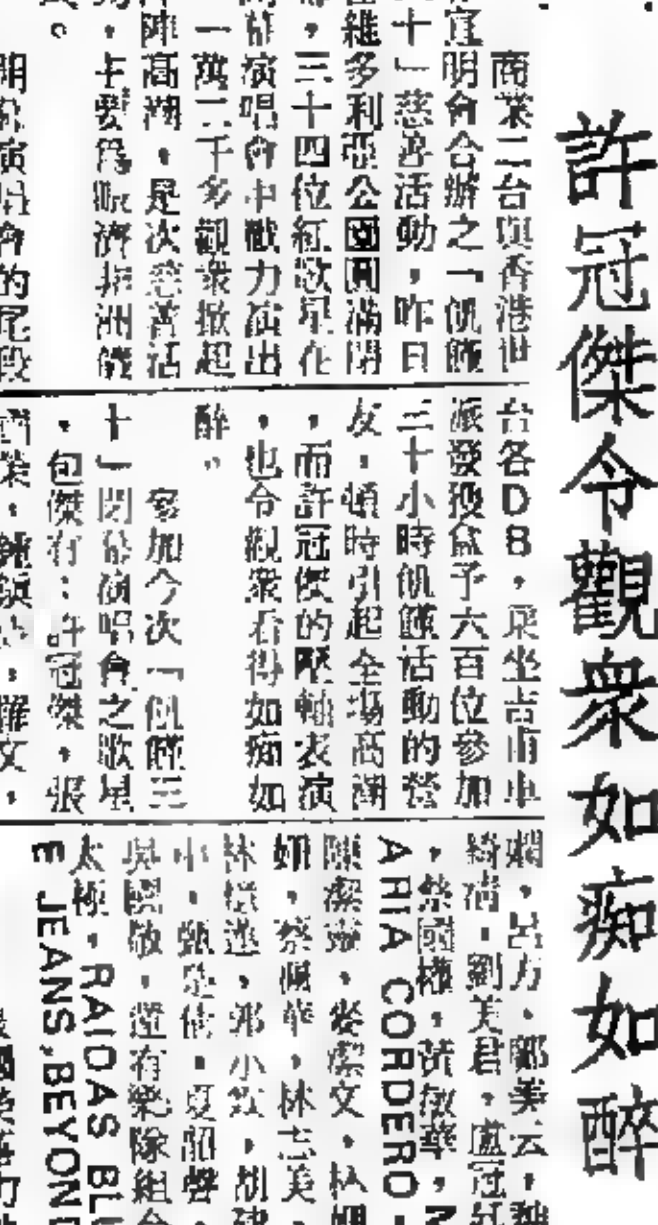 許冠傑令觀眾如痴如醉
商業二台與香港世
宣明會合辦之「飢饉
十」慈善活動，昨日
維多利亞公園圓滿閉
，三十四位紅歌星在
演唱會中戮力演出
一萬二千多觀眾掀起
陣高潮，是次慈善活
主要為賑濟非洲饑
演唱會的尾段
台各DB，乘坐吉甫車
派發投盒予六百位參加
三十小時飢饉活動的營
友，頓時引起全場高潮
，而許冠傑的壓軸表演
，也令觀眾看得如痴如
醉。
參加今次「飢饉三
十」閉幕演唱會之歌星
，包傑有：許冠傑，張
國榮，鍾鎮濤，羅文，
嫻，呂方，鄺美云，
綺湞，劉美君，盧冠廷
，蔡國權，黃敏華，M
ARIA CORDERO，
陳潔靈，麥潔文，林姍
姍，蔡楓華，林志美，
林憶蓮，鄧小
，甄楚倩，夏韶聲，
吳國敬，還有樂隊組合
太極，RAIDAS BLU
E JEANS，BEYOND